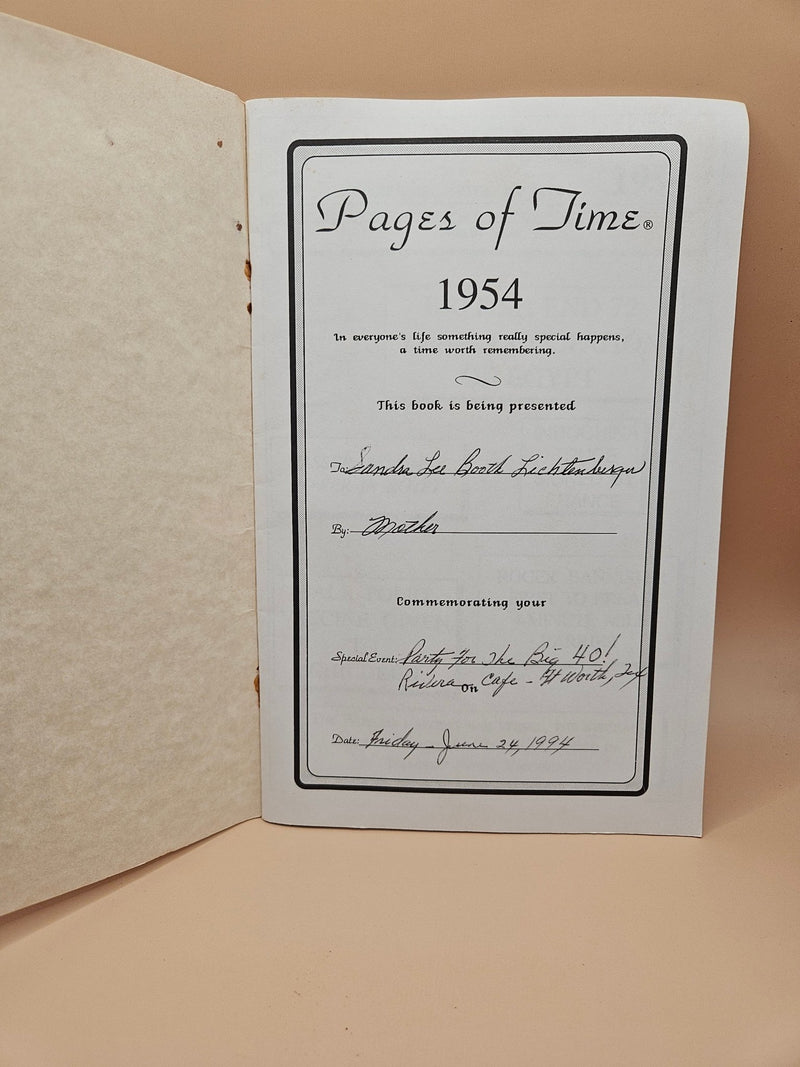 Pages of Time®
1954
In everyone's life something really special happens,
a time worth remembering.
This book is being presented
To: Sandra Lee Booth Lichtenberger
By: Mother
Commemorating your
Special Event: Party For The Big 40!
Riviera Cafe - Ft Worth, Tex
on
Date: Friday - June 24, 1994